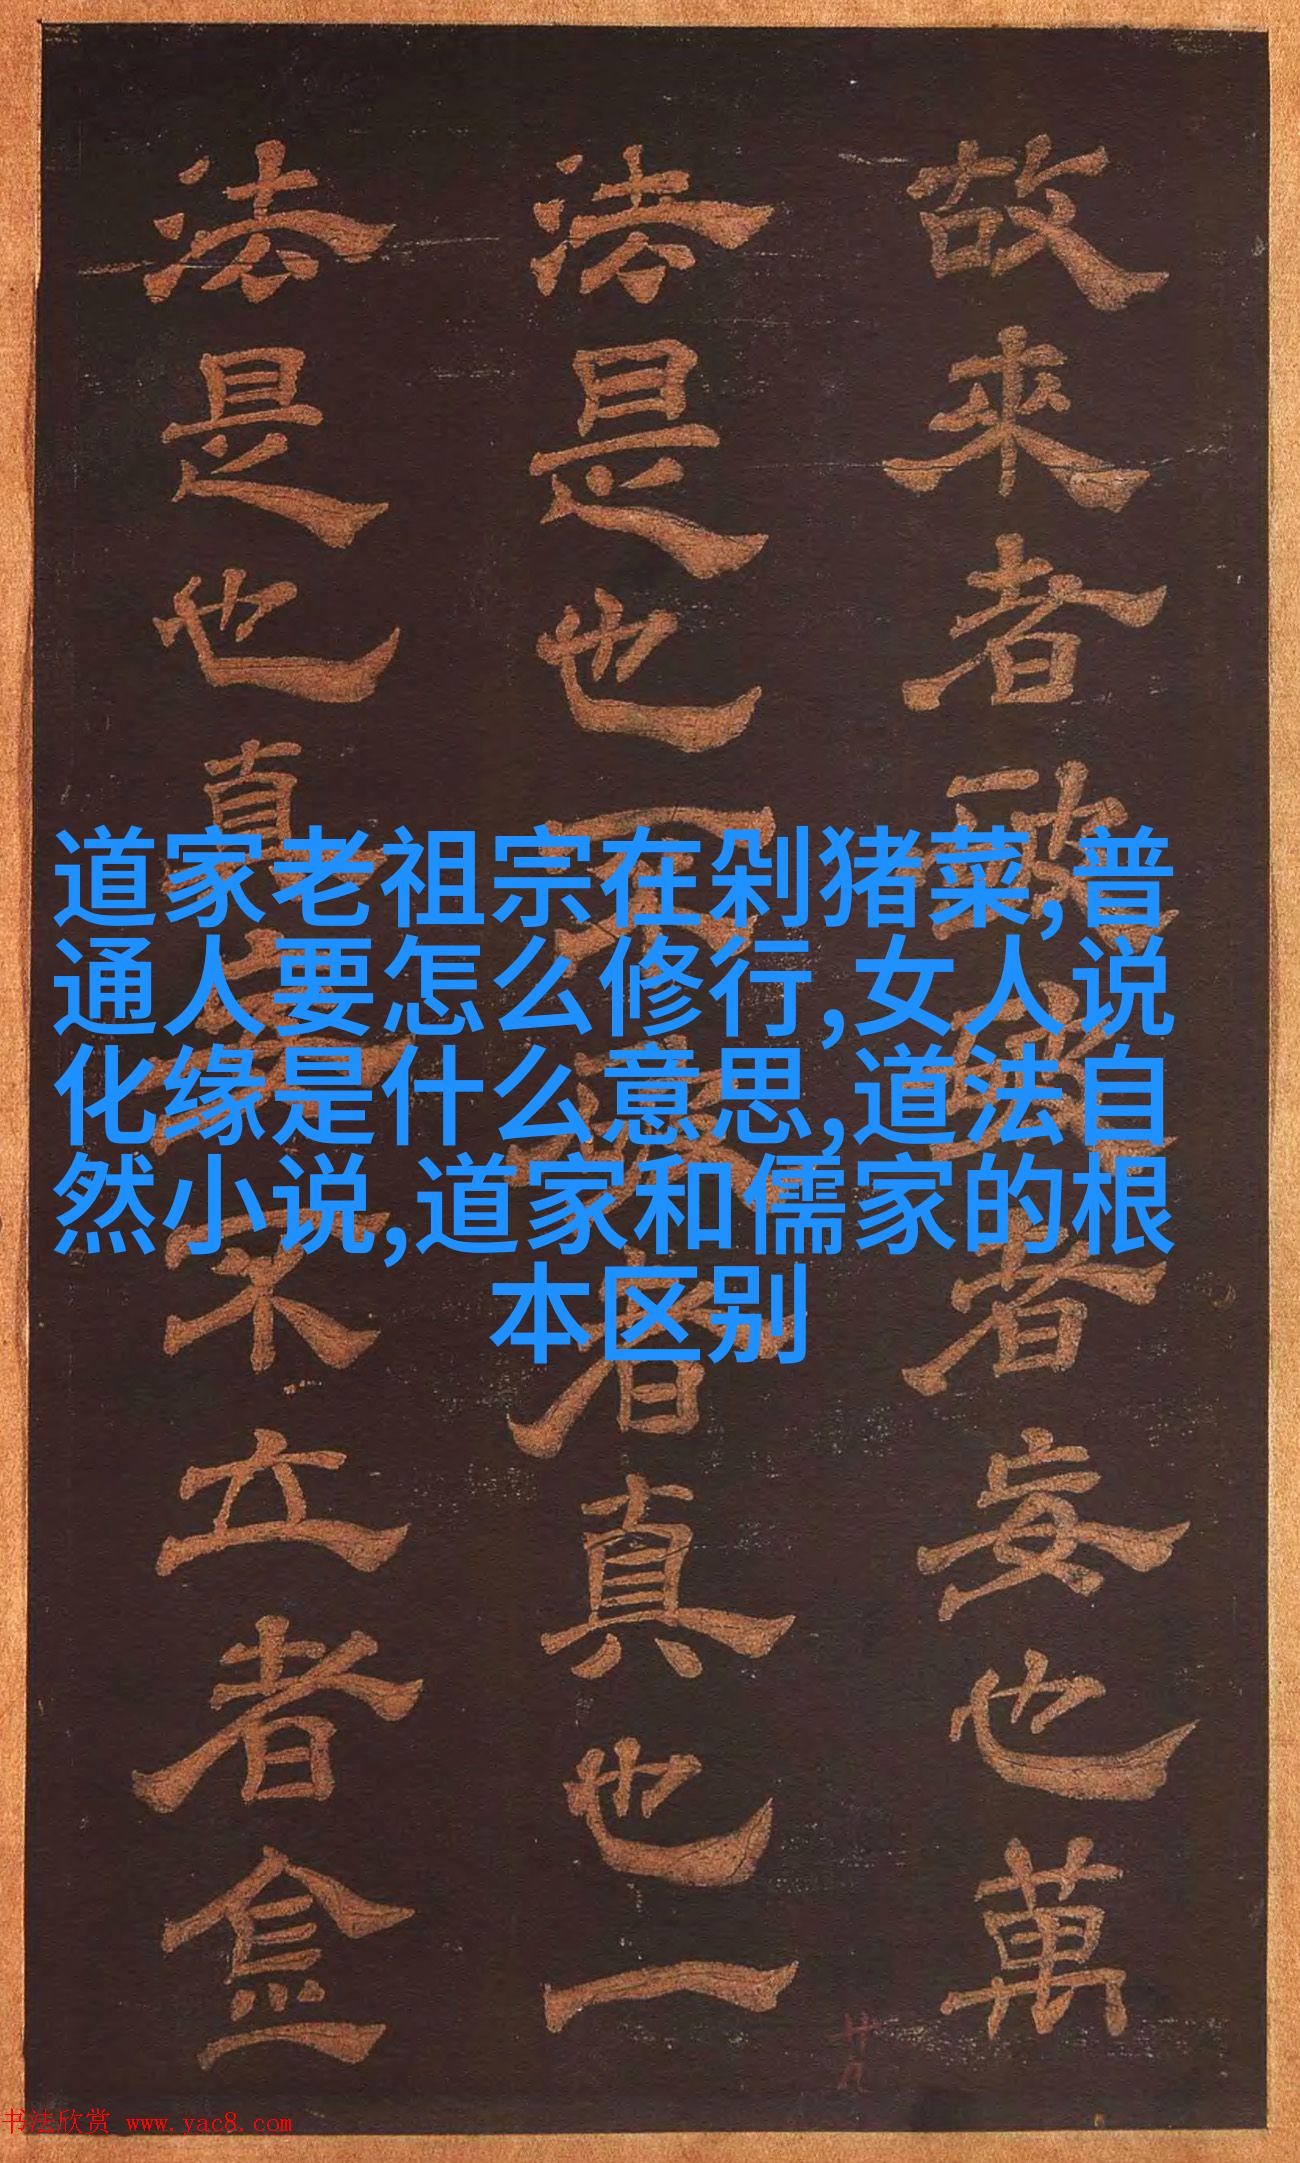 道家老祖宗在剁猪菜,普
通人要怎么修行,女人说
化缘是什么意思,道法自
然小说,道家和儒家的根
本区别
故来者
者妄也萬
法是也
者真也一
法是也真
不立者
书法欣赏 www.yac8.com